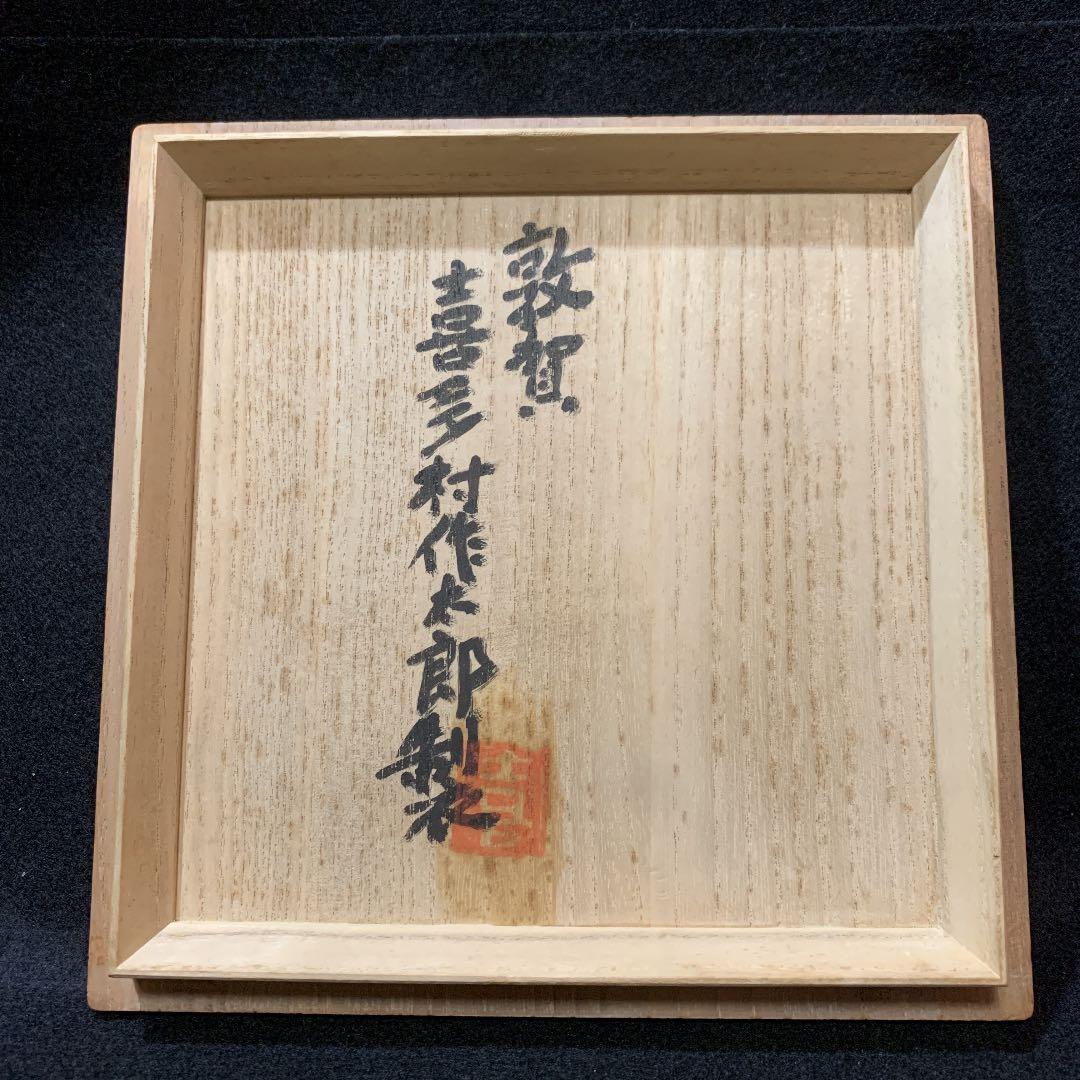 敦賀
喜多村作太郎製
喜